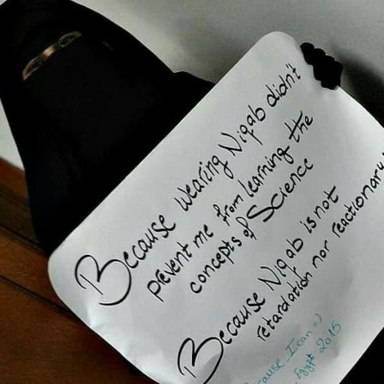 Because wearing Niqab didn't
prevent me from learning the
concepts of Science
Because Niqab is not
retardation nor reactionary
Because_I can =)
Egypt 2015